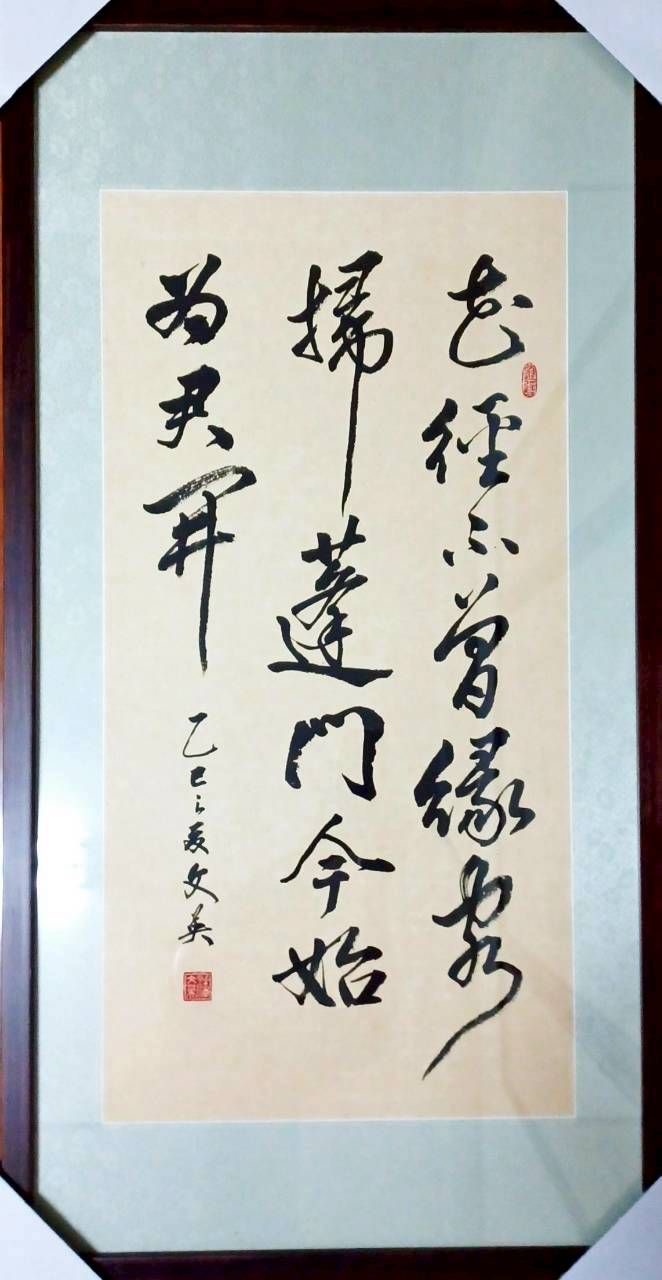 花徑不曾緣客
掃蓬門今始
為君開
乙巳之夏文英